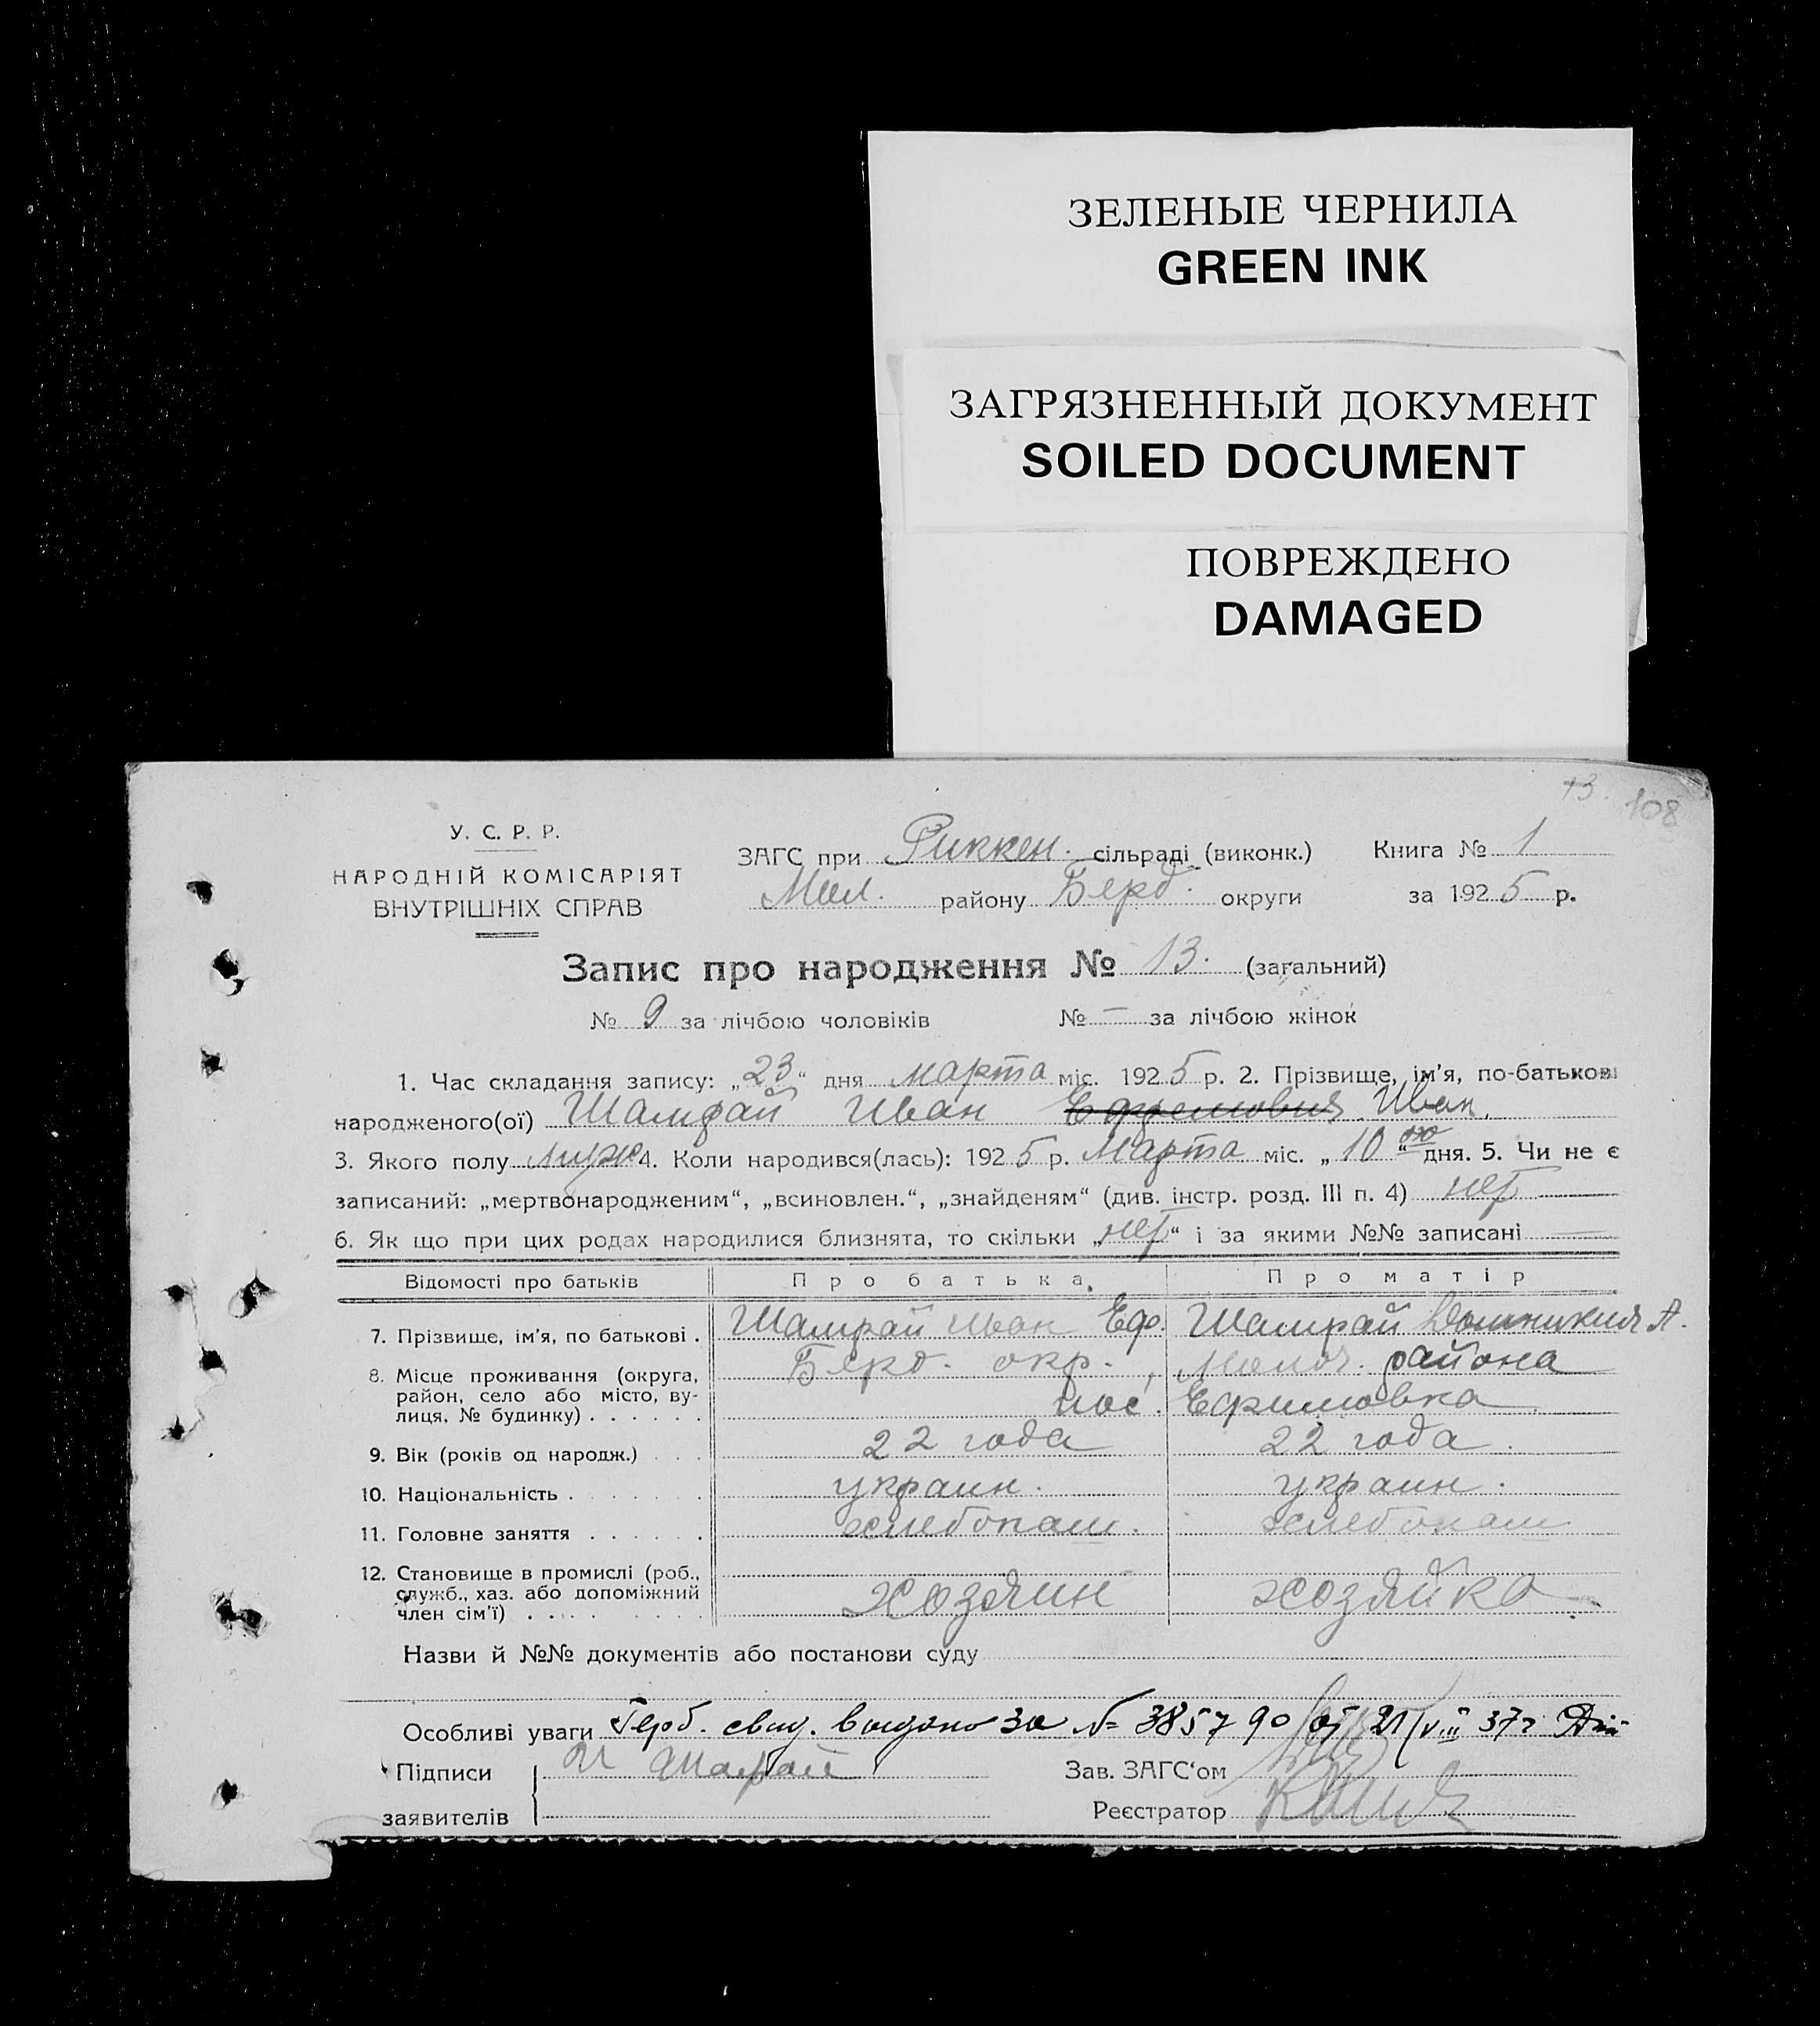 ЗЕЛЕНЫЕ ЧЕРНИЛА
GREEN INK
ЗАГРЯЗНЕННЫЙ ДОКУМЕНТ
SOILED DOCUMENT
ПОВРЕЖДЕНО
DAMAGED
13. 108
У. С. Р. Р.
НАРОДНІЙ КОМІСАРІЯТ
ВНУТРІШНІХ СПРАВ
ЗАГС при Риккен. сільраді (виконк.) Книга № 1
Мол. району Берд. округи за 1925 р.
Запис про народження № 13. (загальний)
№ 9 за лічбою чоловіків № — за лічбою жінок
1. Час складання запису: „23“ дня марта міс. 1925 р. 2. Прізвище, ім’я, по-батькові
народженого(ої) Шамрай Иван Ефремович Иван.
3. Якого полу муж 4. Коли народився(лась): 1925 р. Марта міс. „10го“ дня. 5. Чи не є
записаний: „мертвонародженим“, „всиновлен.“, „знайденям“ (див. інстр. розд. III п. 4) нет
6. Як що при цих родах народилися близнята, то скільки „нет“ і за якими №№ записані —
Відомості про батьків Про батька. Про матір
7. Прізвище, ім’я, по батькові . Шамрай Иван Еф. Шамрай А.
8. Місце проживання (округа, Берд. окр., Молоч. района
район, село або місто, ву-
лиця, № будинку) . . . . . . пос. Ефимовка
9. Вік (років од народж.) . . . 22 года 22 года.
10. Національність . . . . . . . украин. украин.
11. Головне заняття . . . . . . хлебопаш. хлебопаш
12. Становище в промислі (роб.,
служб., хаз. або допоміжний хозяин хозяйка
член сім’ї) . . . .
Назви й №№ документів або постанови суду
Особливі уваги Герб. свид. выдано за № 385790 от 21/VIII 37г
Підписи И Шамрай Зав. ЗАГС‘ом
заявителів Реєстратор